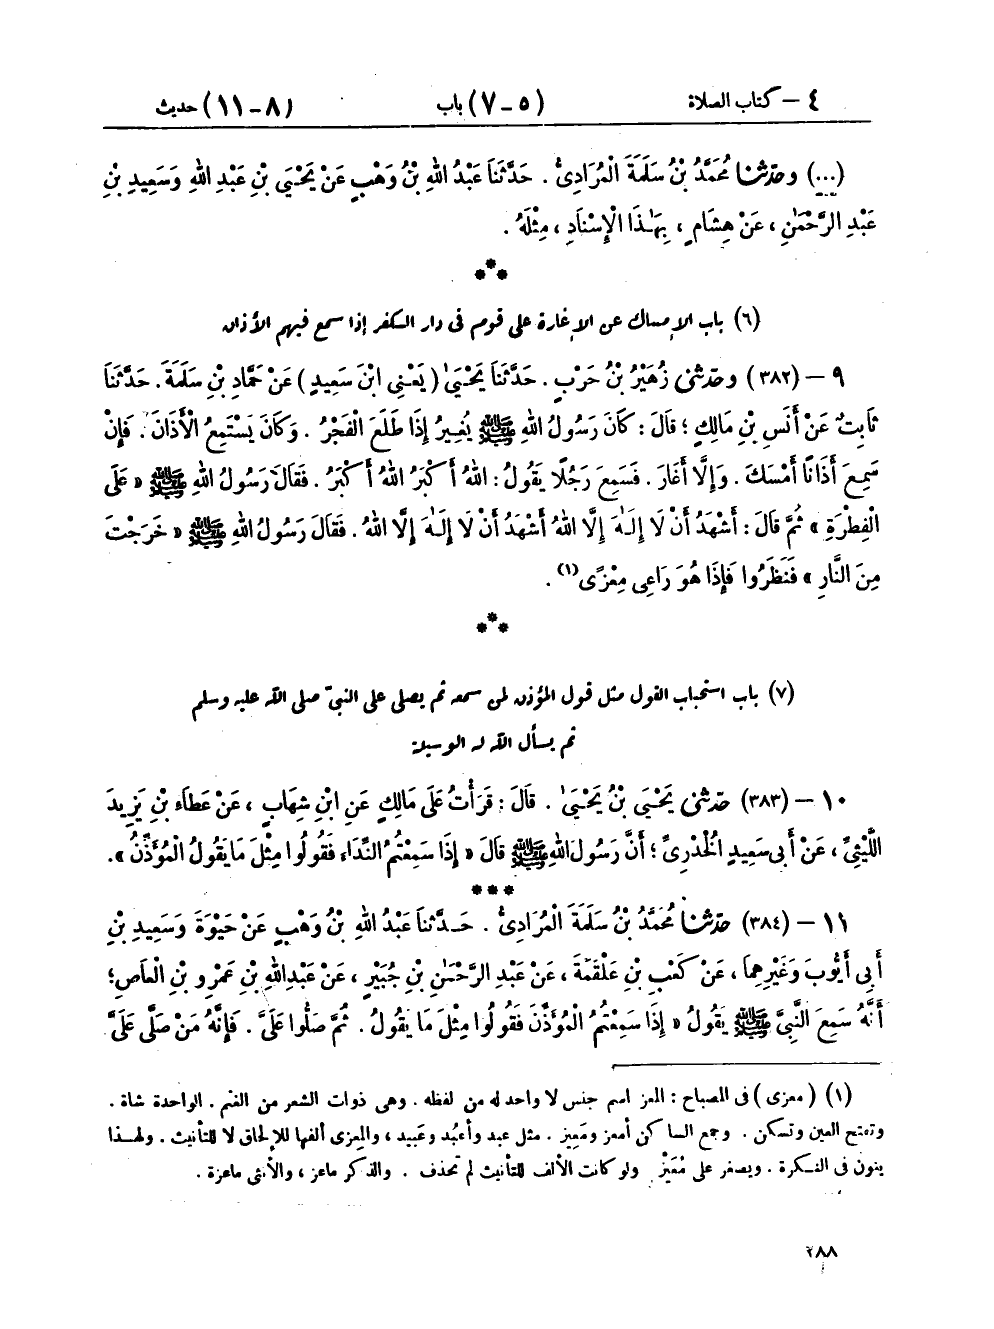 ٤ – كتاب الصلاة (٥ – ٧) باب (٨ – ١١) حديث
(...) وحَدَّثَنَا مُحَمَّدُ بْنُ سَلَمَةَ الْمُرَادِيُّ . حَدَّثَنَا عَبْدُ اللهِ بْنُ وَهْبٍ عَنْ يَحْيَى بْنِ عَبْدِ اللهِ وَسَعِيدِ بْنِ
عَبْدِ الرَّحْمَٰنِ ، عَنْ هِشَامٍ ، بِهَٰذَا الْإِسْنَادِ ، مِثْلَهُ .
(٦) باب الإمساك عن الإغارة على قوم فى دار الكفر إذا سمع فيهم الأذان
٩ – (٣٨٢) وحَدَّثَنِي زُهَيْرُ بْنُ حَرْبٍ . حَدَّثَنَا يَحْيَىٰ ( يَعْنِى ابْنَ سَعِيدٍ ) عَنْ حَمَّادِ بْنِ سَلَمَةَ . حَدَّثَنَا
ثَابِتٌ عَنْ أَنَسِ بْنِ مَالِكٍ ؛ قَالَ : كَانَ رَسُولُ اللهِ ﷺ يُغِيرُ إِذَا طَلَعَ الْفَجْرُ . وَكَانَ يَسْتَمِعُ الْأَذَانَ . فَإِنْ
سَمِعَ أَذَانًا أَمْسَكَ . وَإِلَّا أَغَارَ . فَسَمِعَ رَجُلًا يَقُولُ : اللهُ أَكْبَرُ اللهُ أَكْبَرُ . فَقَالَ رَسُولُ اللهِ ﷺ « عَلَى
الْفِطْرَةِ » ثُمَّ قَالَ : أَشْهَدُ أَنْ لَا إِلَٰهَ إِلَّا اللهُ أَشْهَدُ أَنْ لَا إِلَٰهَ إِلَّا اللهُ . فَقَالَ رَسُولُ اللهِ ﷺ « خَرَجْتَ
مِنَ النَّارِ » فَنَظَرُوا فَإِذَا هُوَ رَاعِى مِعْزًى (١) .
(٧) باب استحباب القول مثل قول المؤذن لمن سمعه ثم يصلى على النبىّ صلى الله عليه وسلم
ثم يسأل الله له الوسيلة
١٠ – (٣٨٣) حَدَّثَنِي يَحْيَى بْنُ يَحْيَىٰ . قَالَ : قَرَأْتُ عَلَى مَالِكٍ عَنِ ابْنِ شِهَابٍ ، عَنْ عَطَاءِ بْنِ يَزِيدَ
اللَّيْثِىِّ ، عَنْ أَبِى سَعِيدٍ الْخُدْرِىِّ ؛ أَنَّ رَسُولَ اللهِ ﷺ قَالَ « إِذَا سَمِعْتُمُ النِّدَاءَ فَقُولُوا مِثْلَ مَا يَقُولُ الْمُؤَذِّنُ » .
***
١١ – (٣٨٤) حَدَّثَنَا مُحَمَّدُ بْنُ سَلَمَةَ الْمُرَادِىُّ . حَدَّثَنَا عَبْدُ اللهِ بْنُ وَهْبٍ عَنْ حَيْوَةَ وَسَعِيدِ بْنِ
أَبِى أَيُّوبَ وَغَيْرِهِمَا ، عَنْ كَعْبِ بْنِ عَلْقَمَةَ ، عَنْ عَبْدِ الرَّحْمَٰنِ بْنِ جُبَيْرٍ ، عَنْ عَبْدِ اللهِ بْنِ عَمْرِو بْنِ الْعَاصِ ؛
أَنَّهُ سَمِعَ النَّبِىَّ ﷺ يَقُولُ « إِذَا سَمِعْتُمُ الْمُؤَذِّنَ فَقُولُوا مِثْلَ مَا يَقُولُ . ثُمَّ صَلُّوا عَلَىَّ . فَإِنَّهُ مَنْ صَلَّى عَلَىَّ
(١) ( معزى ) فى المصباح : المعز اسم جنس لا واحد له من لفظه . وهى ذوات الشعر من الغنم . الواحدة شاة .
وتفتح العين وتسكن . وجمع الساكن أمعز ومعيز . مثل عبد وأعبُد وعَبيد ، والمِعزى ألفها للإلحاق لا للتأنيث . ولهذا
ينون فى النكرة . ويصغر على مُعَيْزٍ ولو كانت الألف للتأنيث لم تحذف . والذكر ماعز ، والأنثى ماعزة .
٢٨٨